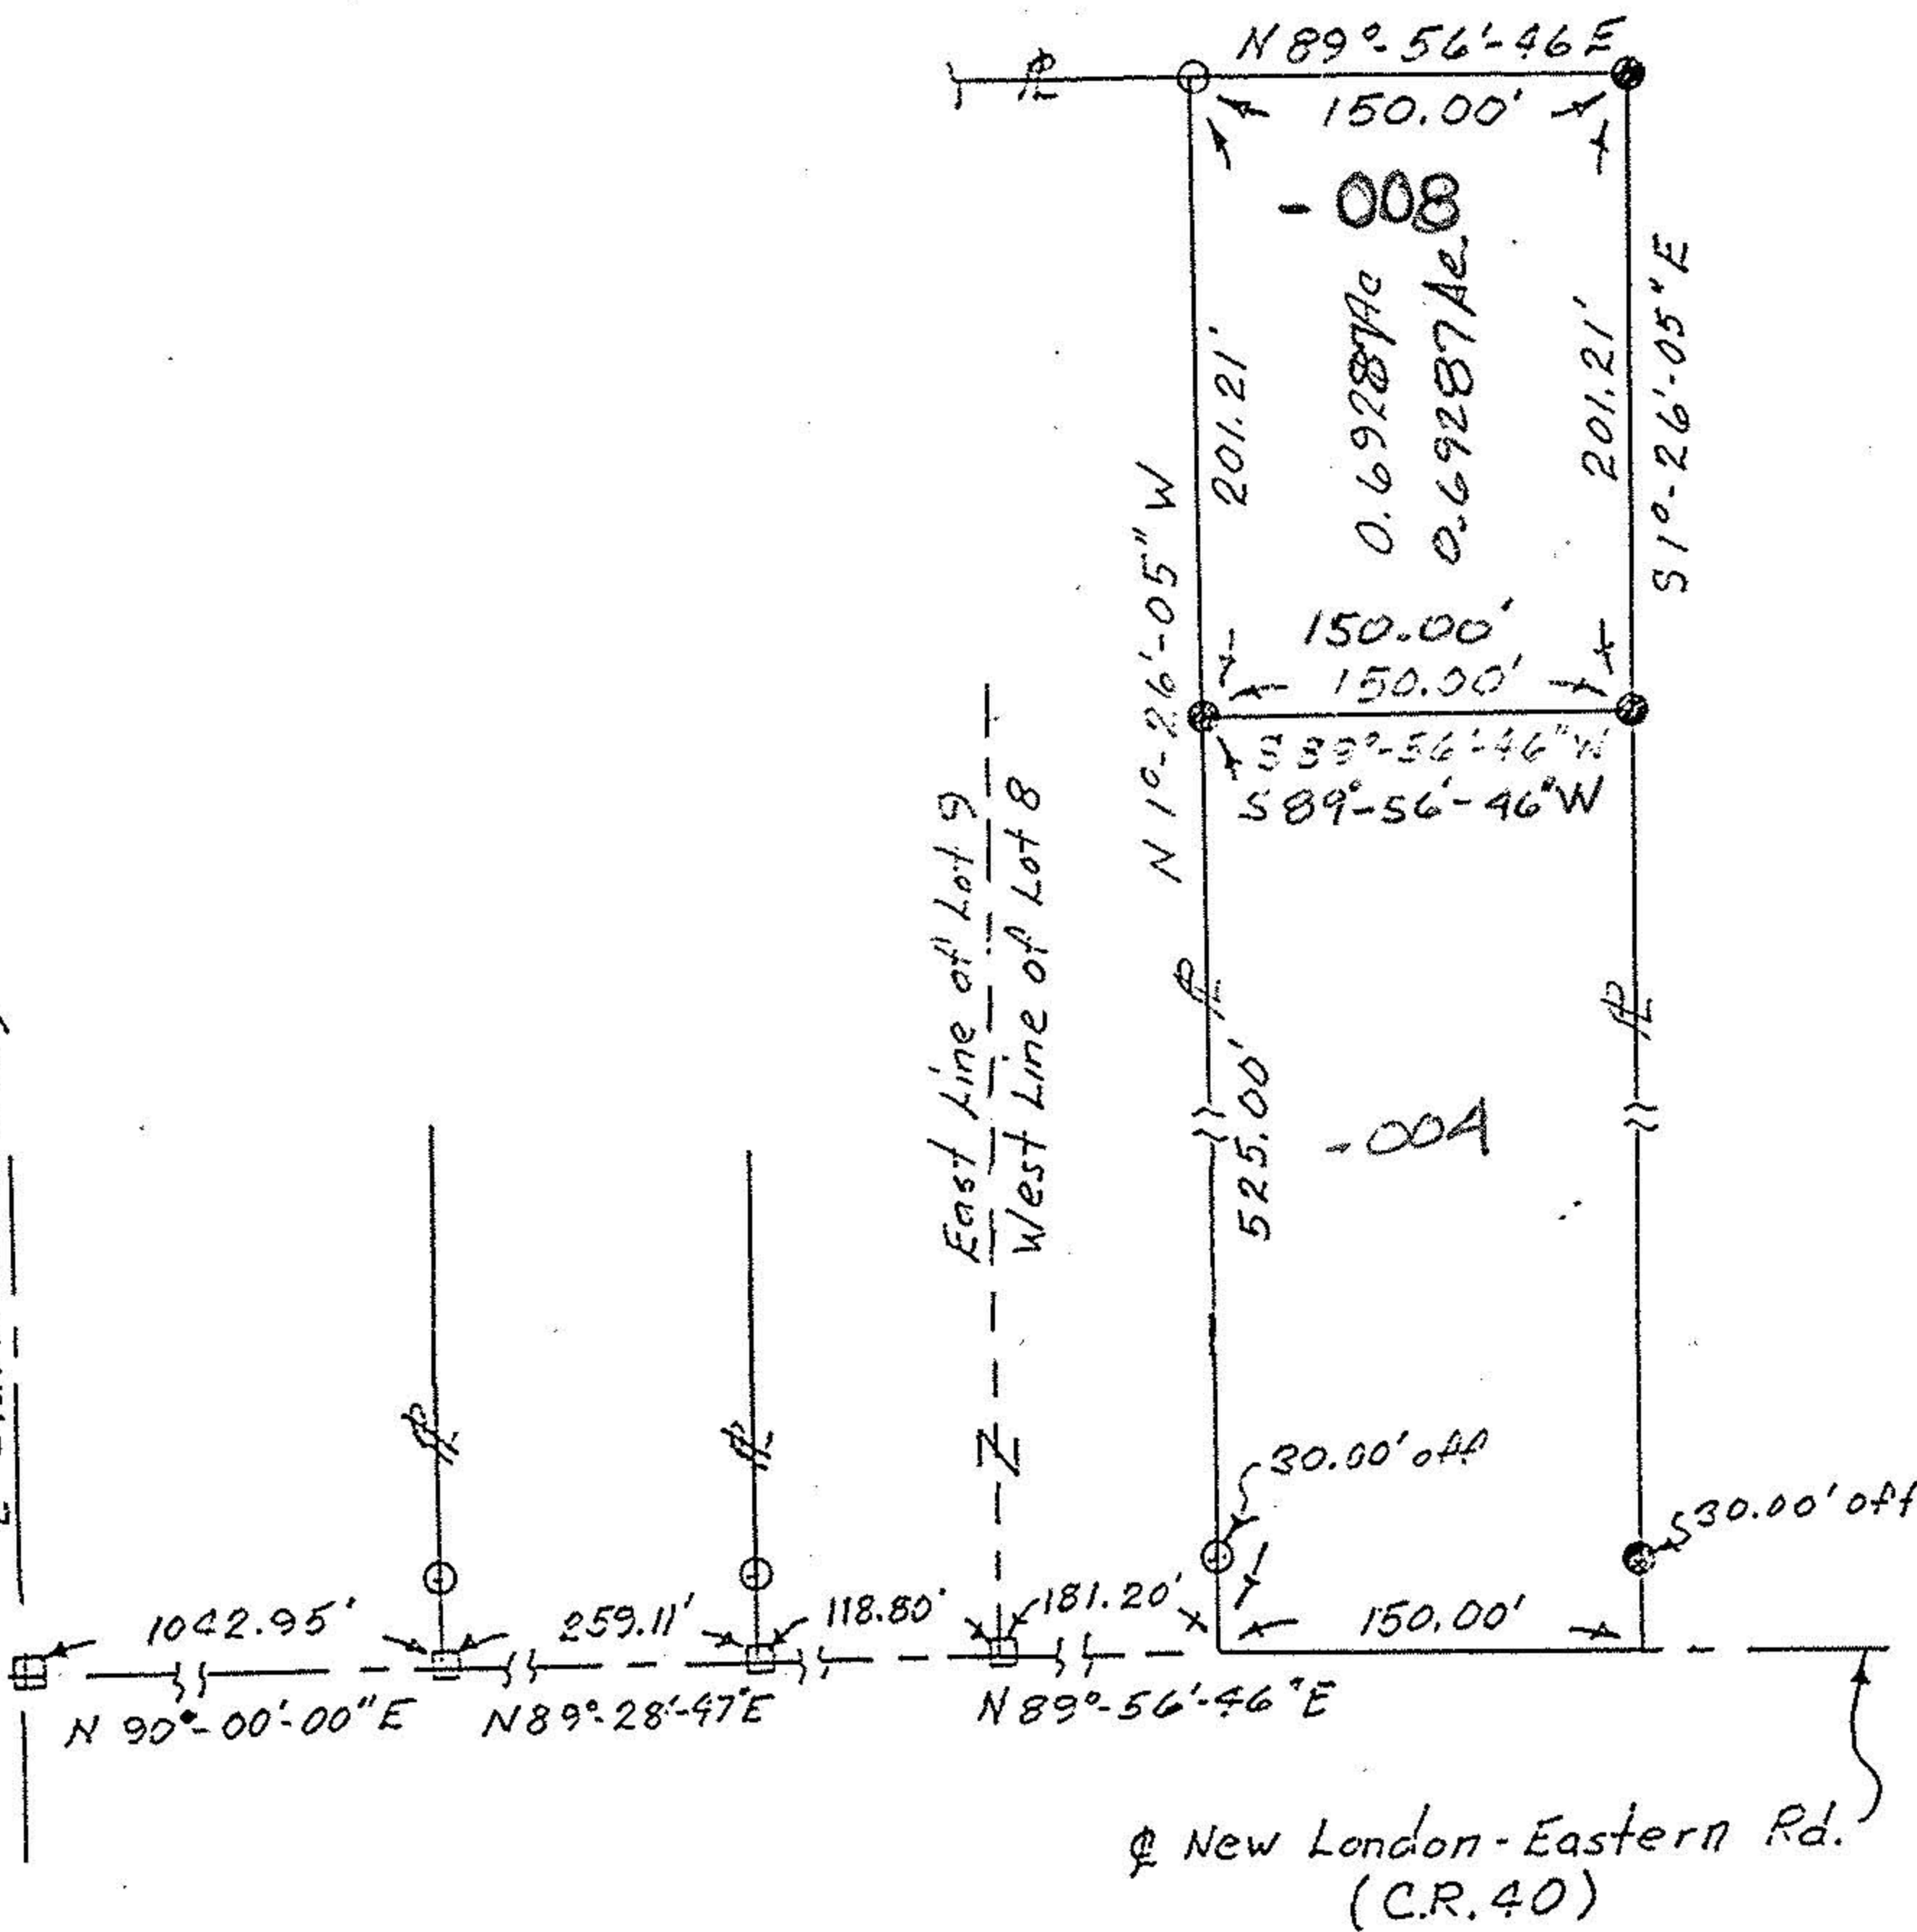 N 89°-56'-46 E
℄
150.00'
-008
0.69287Ac
0.69287Ac
201.21'
201.21'
S 1°-26'-05" E
N 1°-26'-05" W
150.00'
150.00'
S 89°-56'-46" W
S 89°-56'-46" W
East Line of Lot 9
West Line of Lot 8
525.00'
-004
30.00' off
30.00' off
1042.95'
259.11'
118.80'
181.20'
150.00'
N 90°-00'-00" E
N 89°-28'-47" E
N 89°-56'-46" E
℄ New London-Eastern Rd.
(C.R. 40)